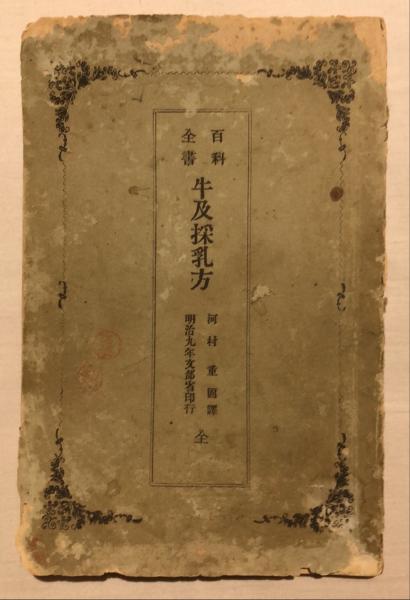 百科
全書
牛及採乳方
河村重固譯
明治九年文部省印行
全